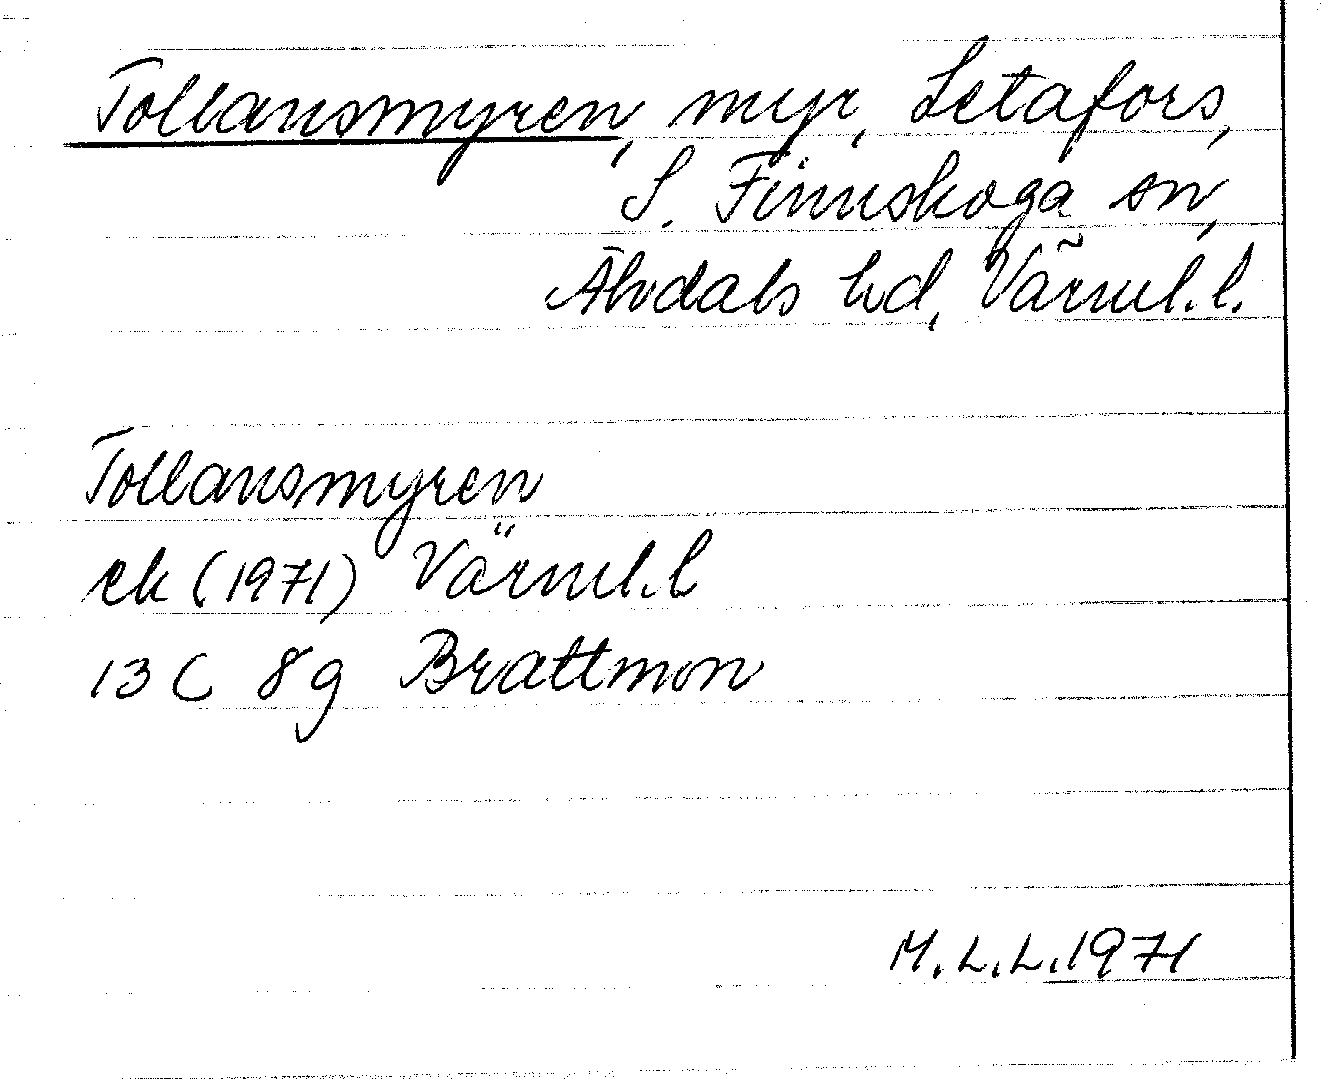 Tollansmyren, myr, Letafors,
S. Finnskoga sn,
Älvdals hd, Värml. l.
Tollansmyren
ek (1971) Värml. l
13 C 8 g Brattmon
M. L. L. 1971